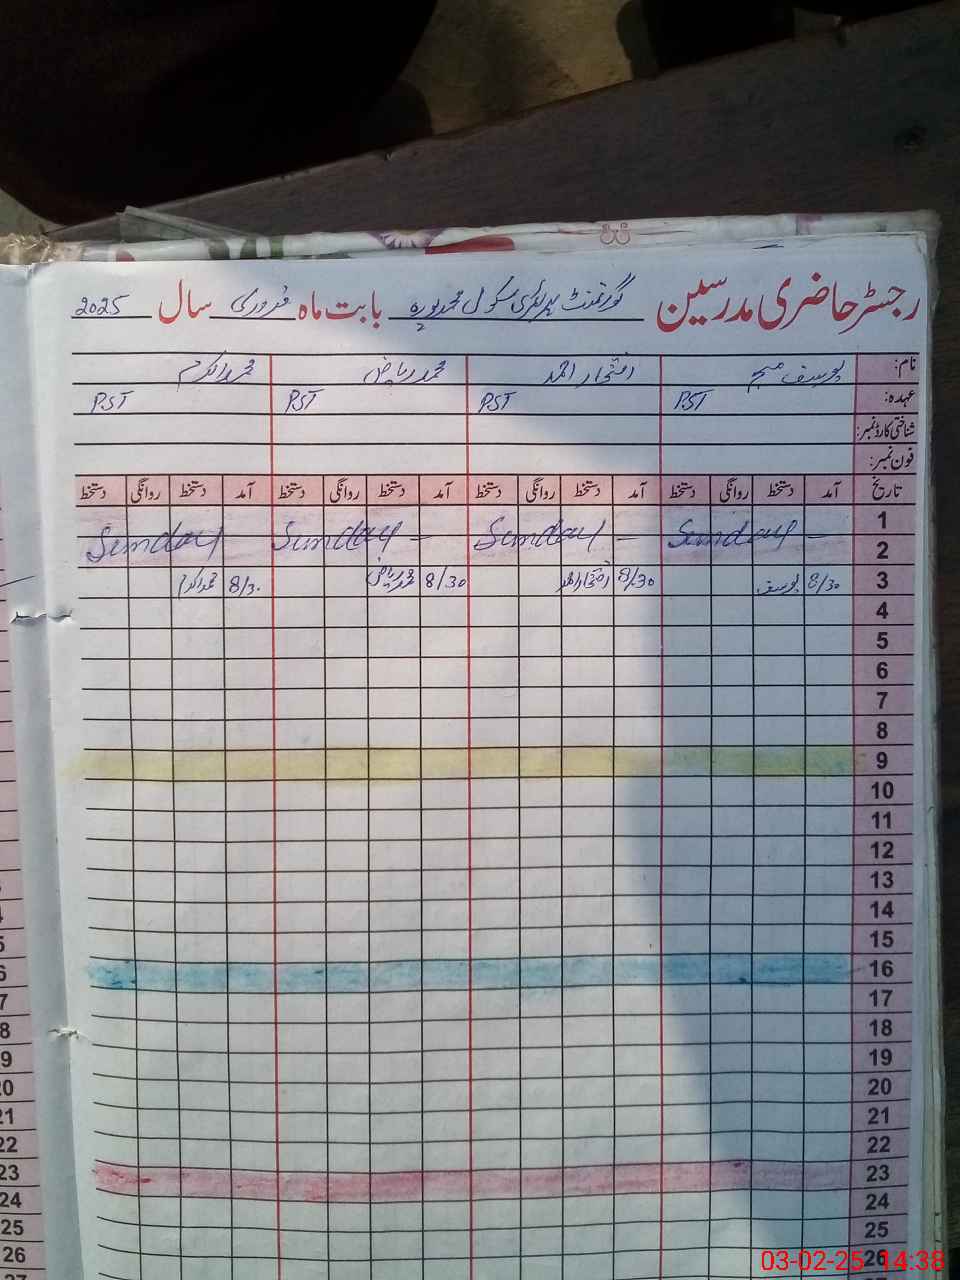 رجسٹر حاضری مدرسین گورنمنٹ پرائمری سکول محمد پورہ بابت ماہ فروری سال 2025
نام: یوسف مسیح افتخار احمد محمد ریاض محمد اکرم
عہدہ: PST PST PST PST
شناختی کارڈ نمبر:
فون نمبر:
تاریخ آمد دستخط روانگی دستخط آمد دستخط روانگی دستخط آمد دستخط روانگی دستخط آمد دستخط روانگی دستخط
1
2 Sunday Sunday Sunday Sunday
3 8/30 یوسف 8/30 افتخار احمد 8/30 محمد ریاض 8/30 محمد اکرم
4
5
6
7
8
9
10
11
12
13
14
15
16
17
18
19
20
21
22
23
24
25
26
8
9
20
21
22
23
24
25
26
03-02-25 14:38